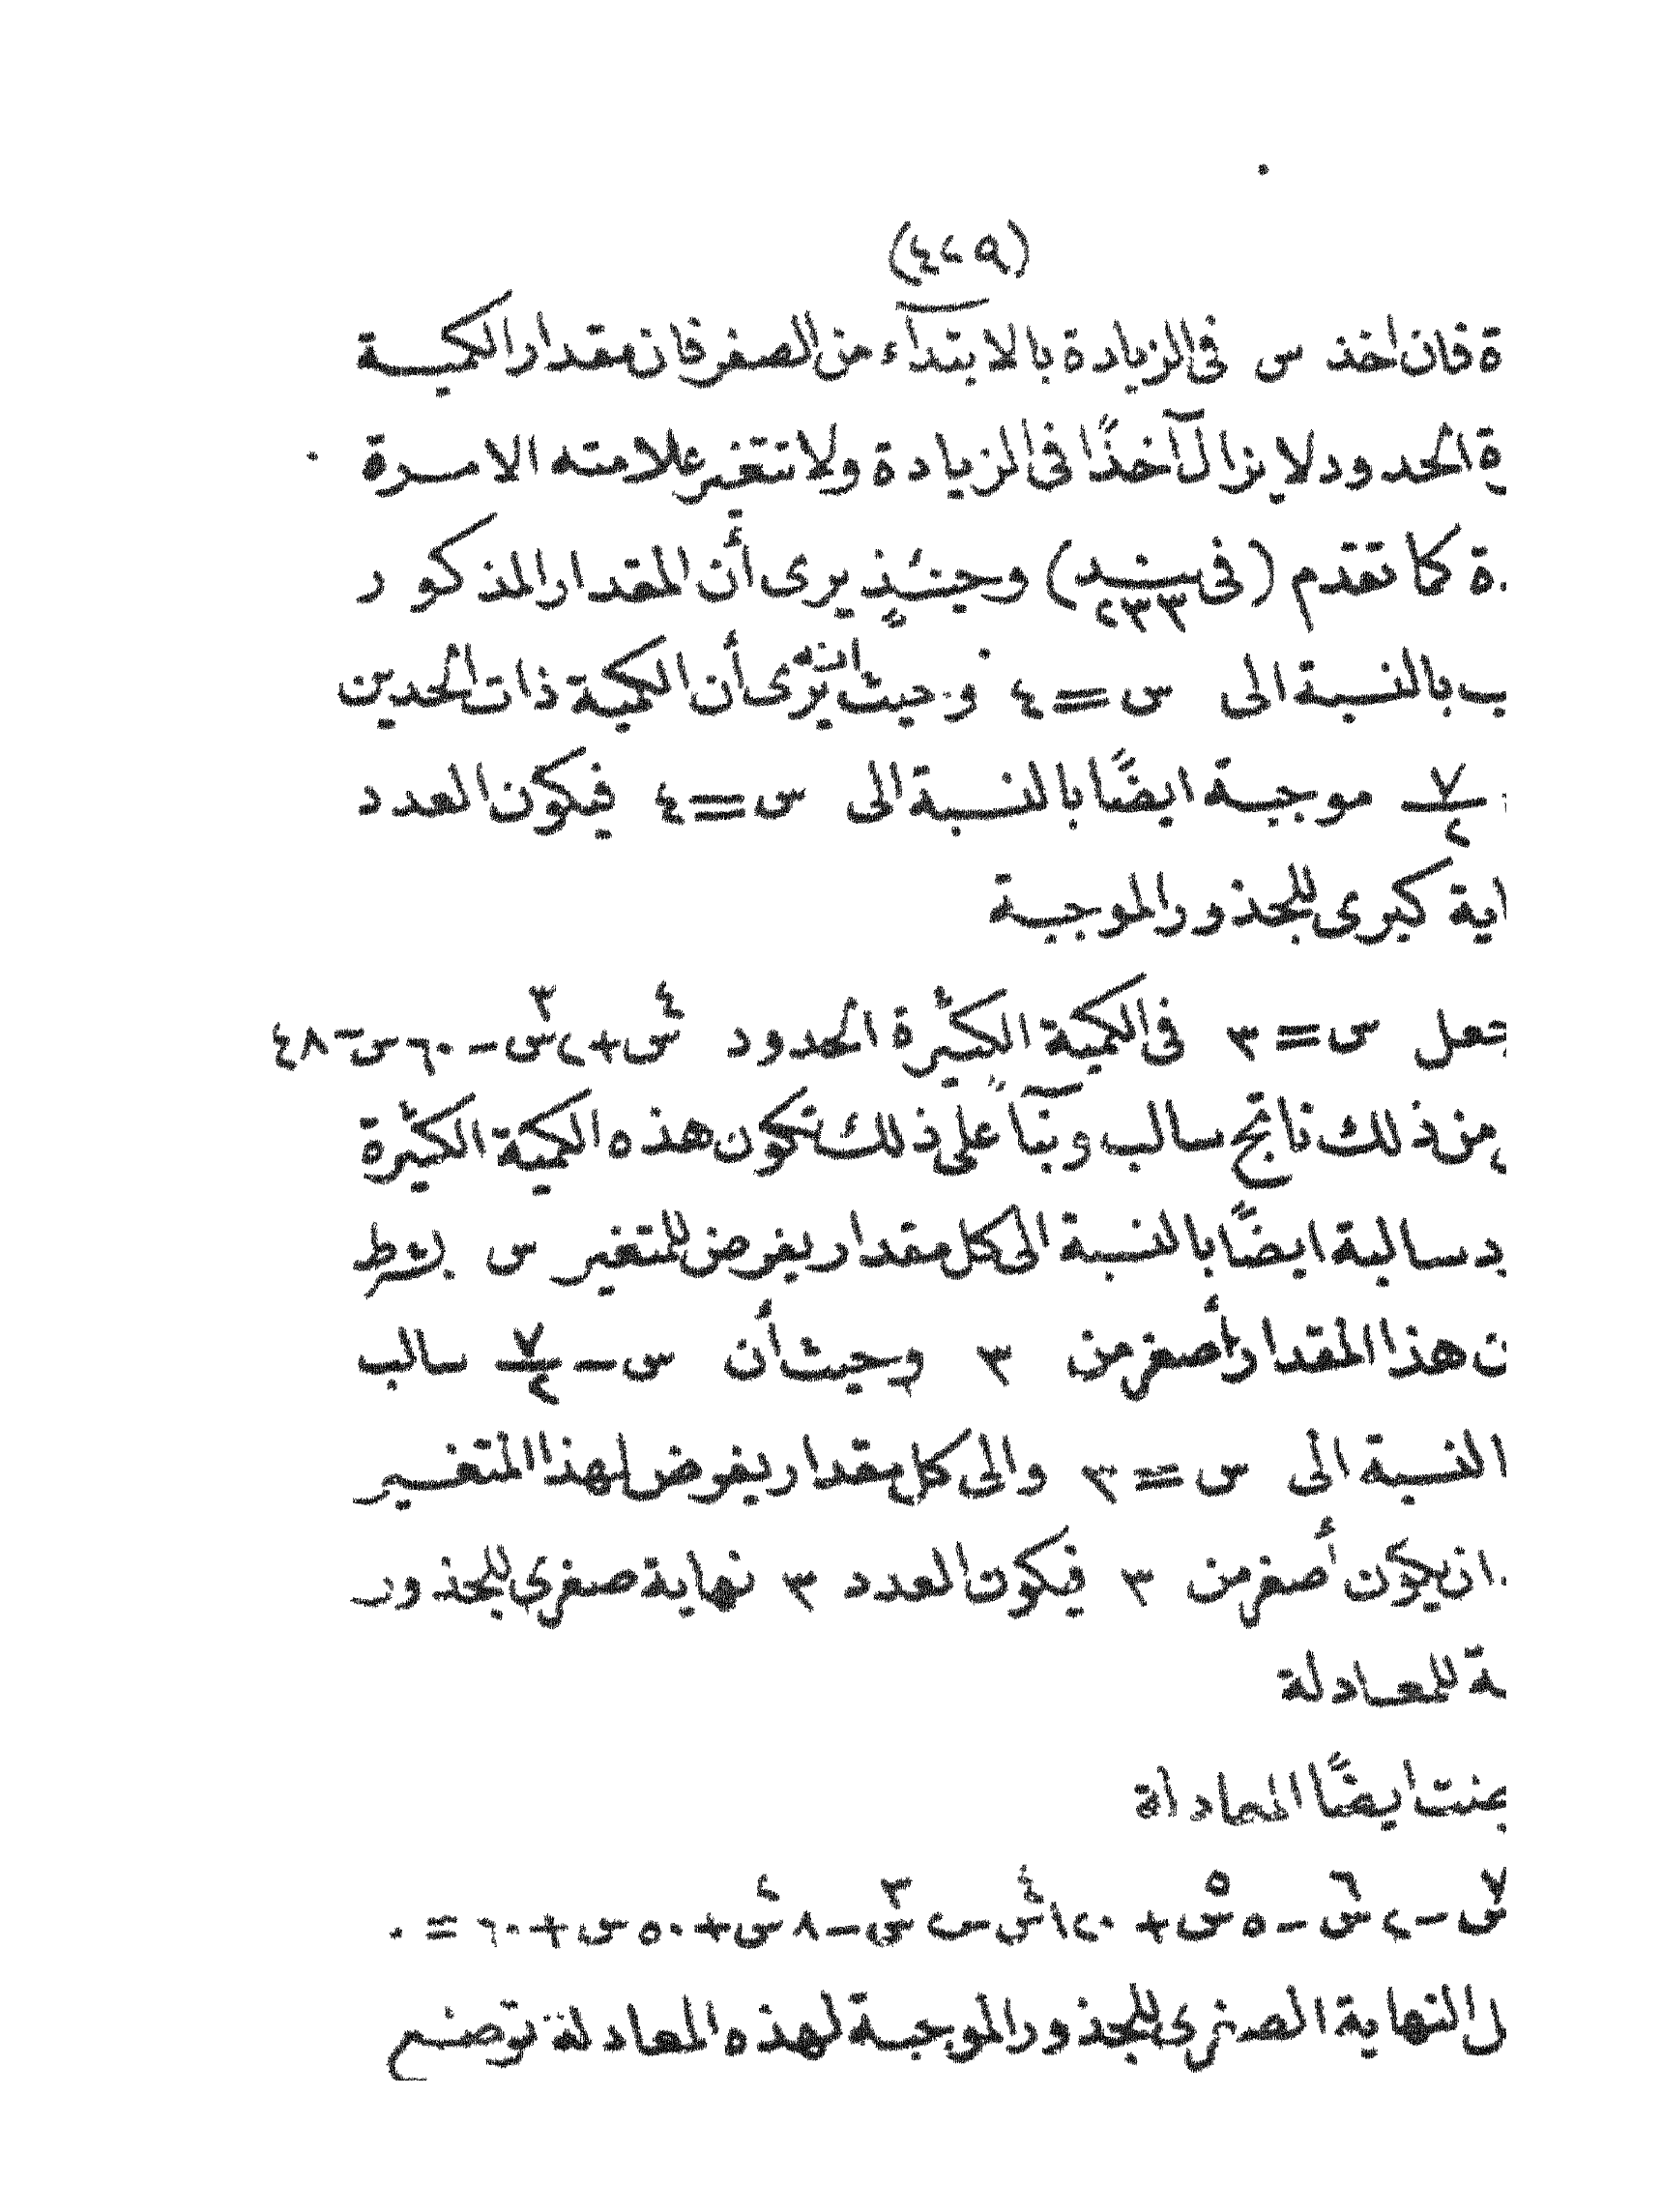 (٤٢٩)
ة فان اخذ س فى الزيادة بالابتدآء من الصفر فان مقدار الكميـــة
ة الحدود لا يزال آخذًا فى الزيادة ولا تتغير علامته الا مـــرة
ة كما تقدم (فى بنـــد ٢٣٣) وحينـــئذٍ يرى أن المقدار المذكور
ب بالنسبة الى س = ٤ وحيث انه يرى أن الكمية ذات الحدين
٧/٢ موجبـة ايضًا بالنسبة الى س = ٤ فيكون العدد
اية كبرى للجذور الموجبـة
جعل س = ٣ فى الكمية الكثيرة الحدود س^٤ + ٢س^٣ - ٦٠س - ٤٨
من ذلك ناتج سالب وبنآً على ذلك تكون هذه الكمية الكثيرة
د سالبة ايضًا بالنسبة الى كل مقدار يفرض للمتغير س بشرط
ن هذا المقدار أصغر من ٣ وحيث أن س - ٧/٢ سالب
النسبة الى س = ٣ والى كل مقدار يفرض لهذا المتغـــير
ان يكون أصغر من ٣ فيكون العدد ٣ نهاية صغرى للجذور
ـة للمعـادلة
ايضًا المعادلة
س^٧ - ٢س^٦ - ٥س^٥ + ١٢٠س^٤ - ٢س^٣ - ٨س^٢ + ٥٠س + ٦٠ = ٠
ل النهاية الصغرى للجذور الموجبـة لهذه المعادلة توضـع